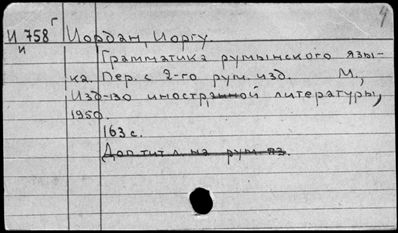 И 758 г Иордан, Иоргу.
и Грамматика румынского язы-
ка. Пер. с 2-го рум. изд. М.,
Изд-во иностранной литературы,
1950.
163 с.
Доп. тит. л. на рум. яз.